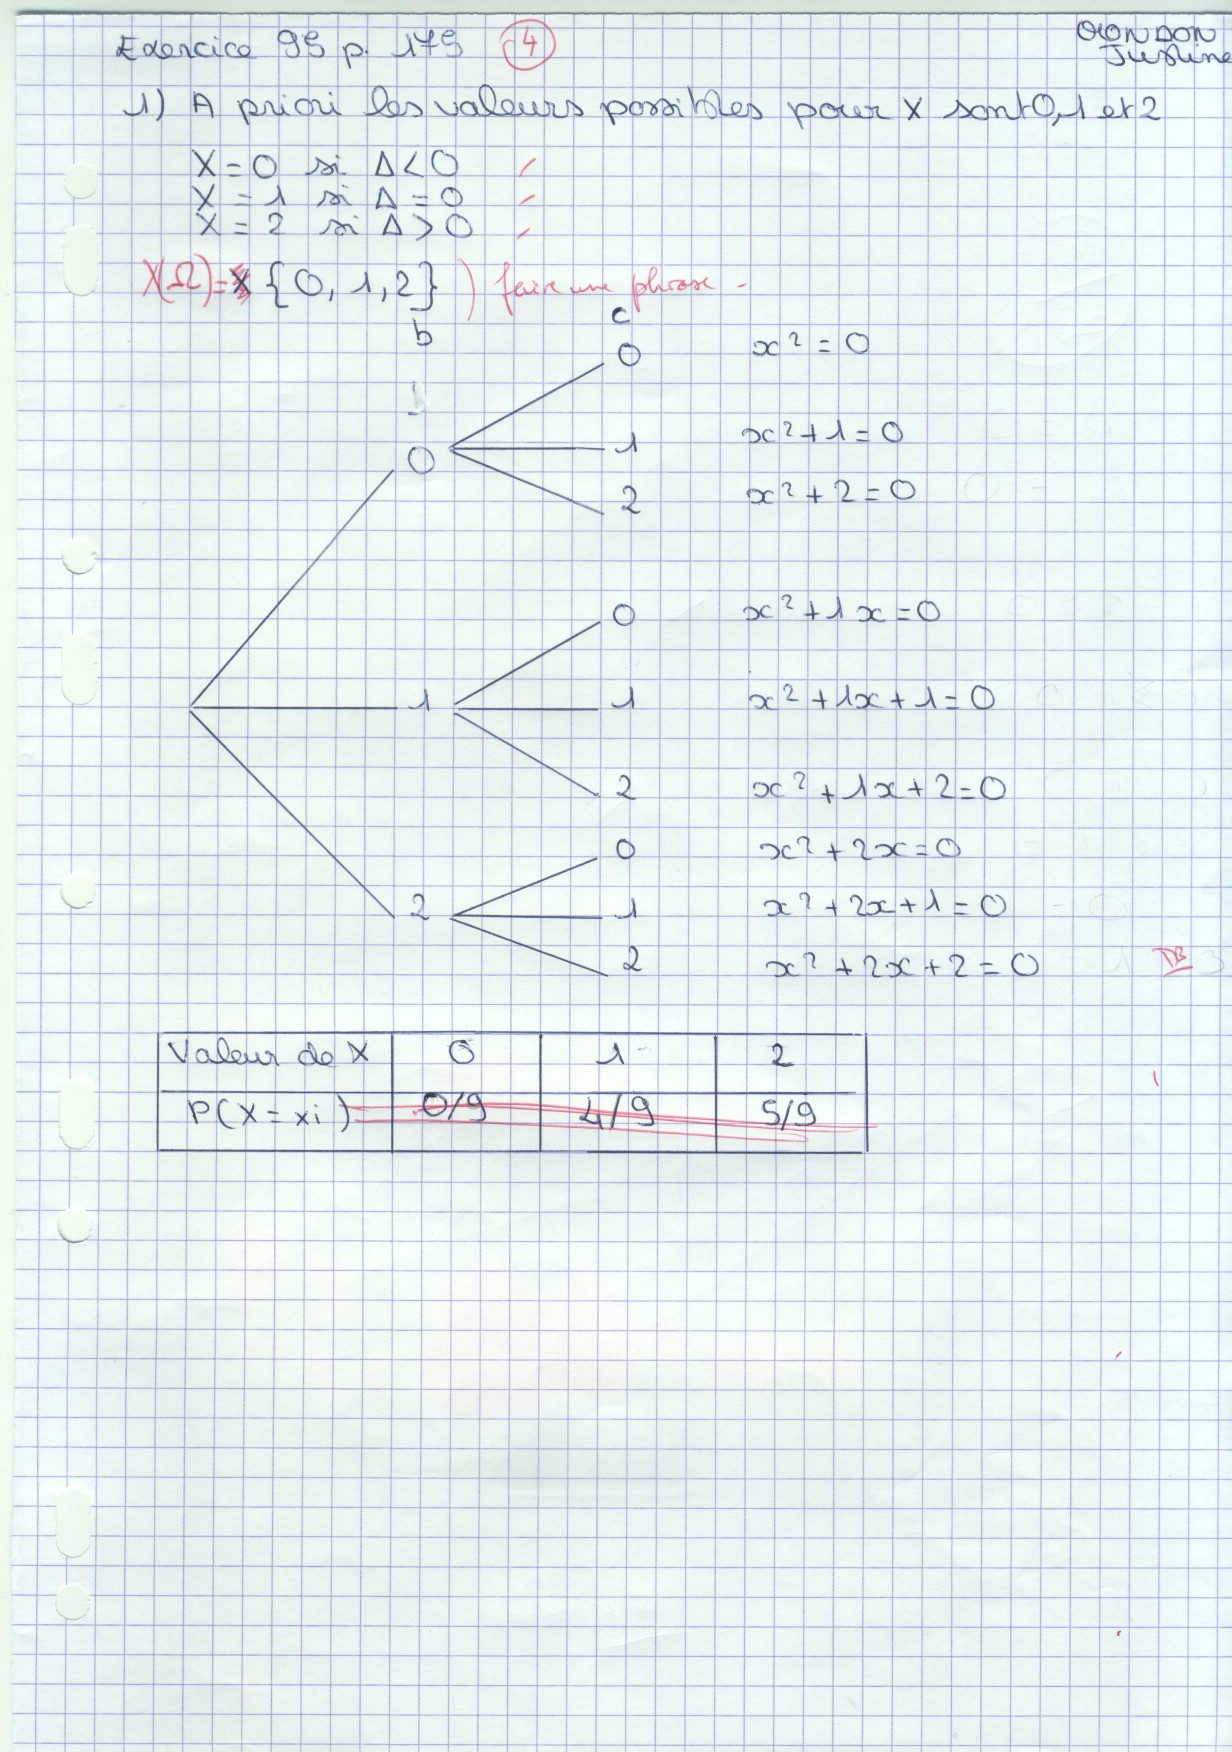 Exercice 95 p. 175 4
Justine
1) A priori les valeurs possibles pour X sont 0, 1 et 2
X = 0 si Δ < 0
X = 1 si Δ = 0
X = 2 si Δ > 0
X(Ω) = {0, 1, 2} ) faire une phrase -
b c
0 x² = 0
0 1 x² + 1 = 0
2 x² + 2 = 0
0 x² + 1x = 0
1 1 x² + 1x + 1 = 0
2 x² + 1x + 2 = 0
0 x² + 2x = 0
2 1 x² + 2x + 1 = 0
2 x² + 2x + 2 = 0 TB
Valeur de X 0 1 2
P(X = xi) 0/9 4/9 5/9